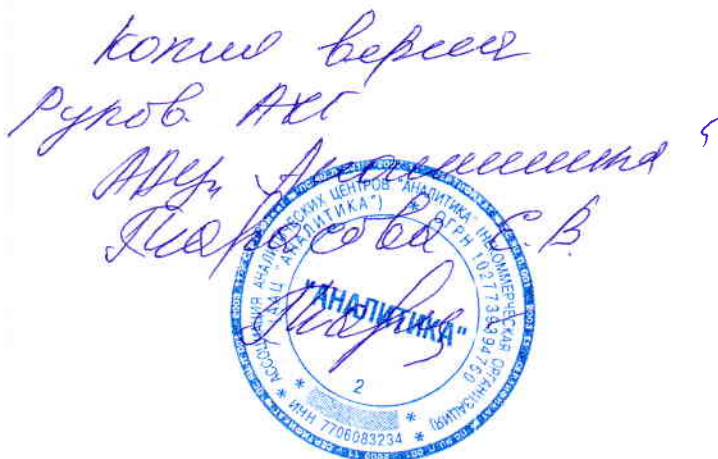 Копия верна
Руков. АХГ
ААЦ "Аналитика"
Тарасова С.В.
* АССОЦИАЦИЯ АНАЛИТИЧЕСКИХ ЦЕНТРОВ "АНАЛИТИКА" (НЕКОММЕРЧЕСКАЯ ОРГАНИЗАЦИЯ)
(ААЦ "АНАЛИТИКА") * ОГРН 1027739394760
"АНАЛИТИКА"
2
* ИНН 7706083234 *